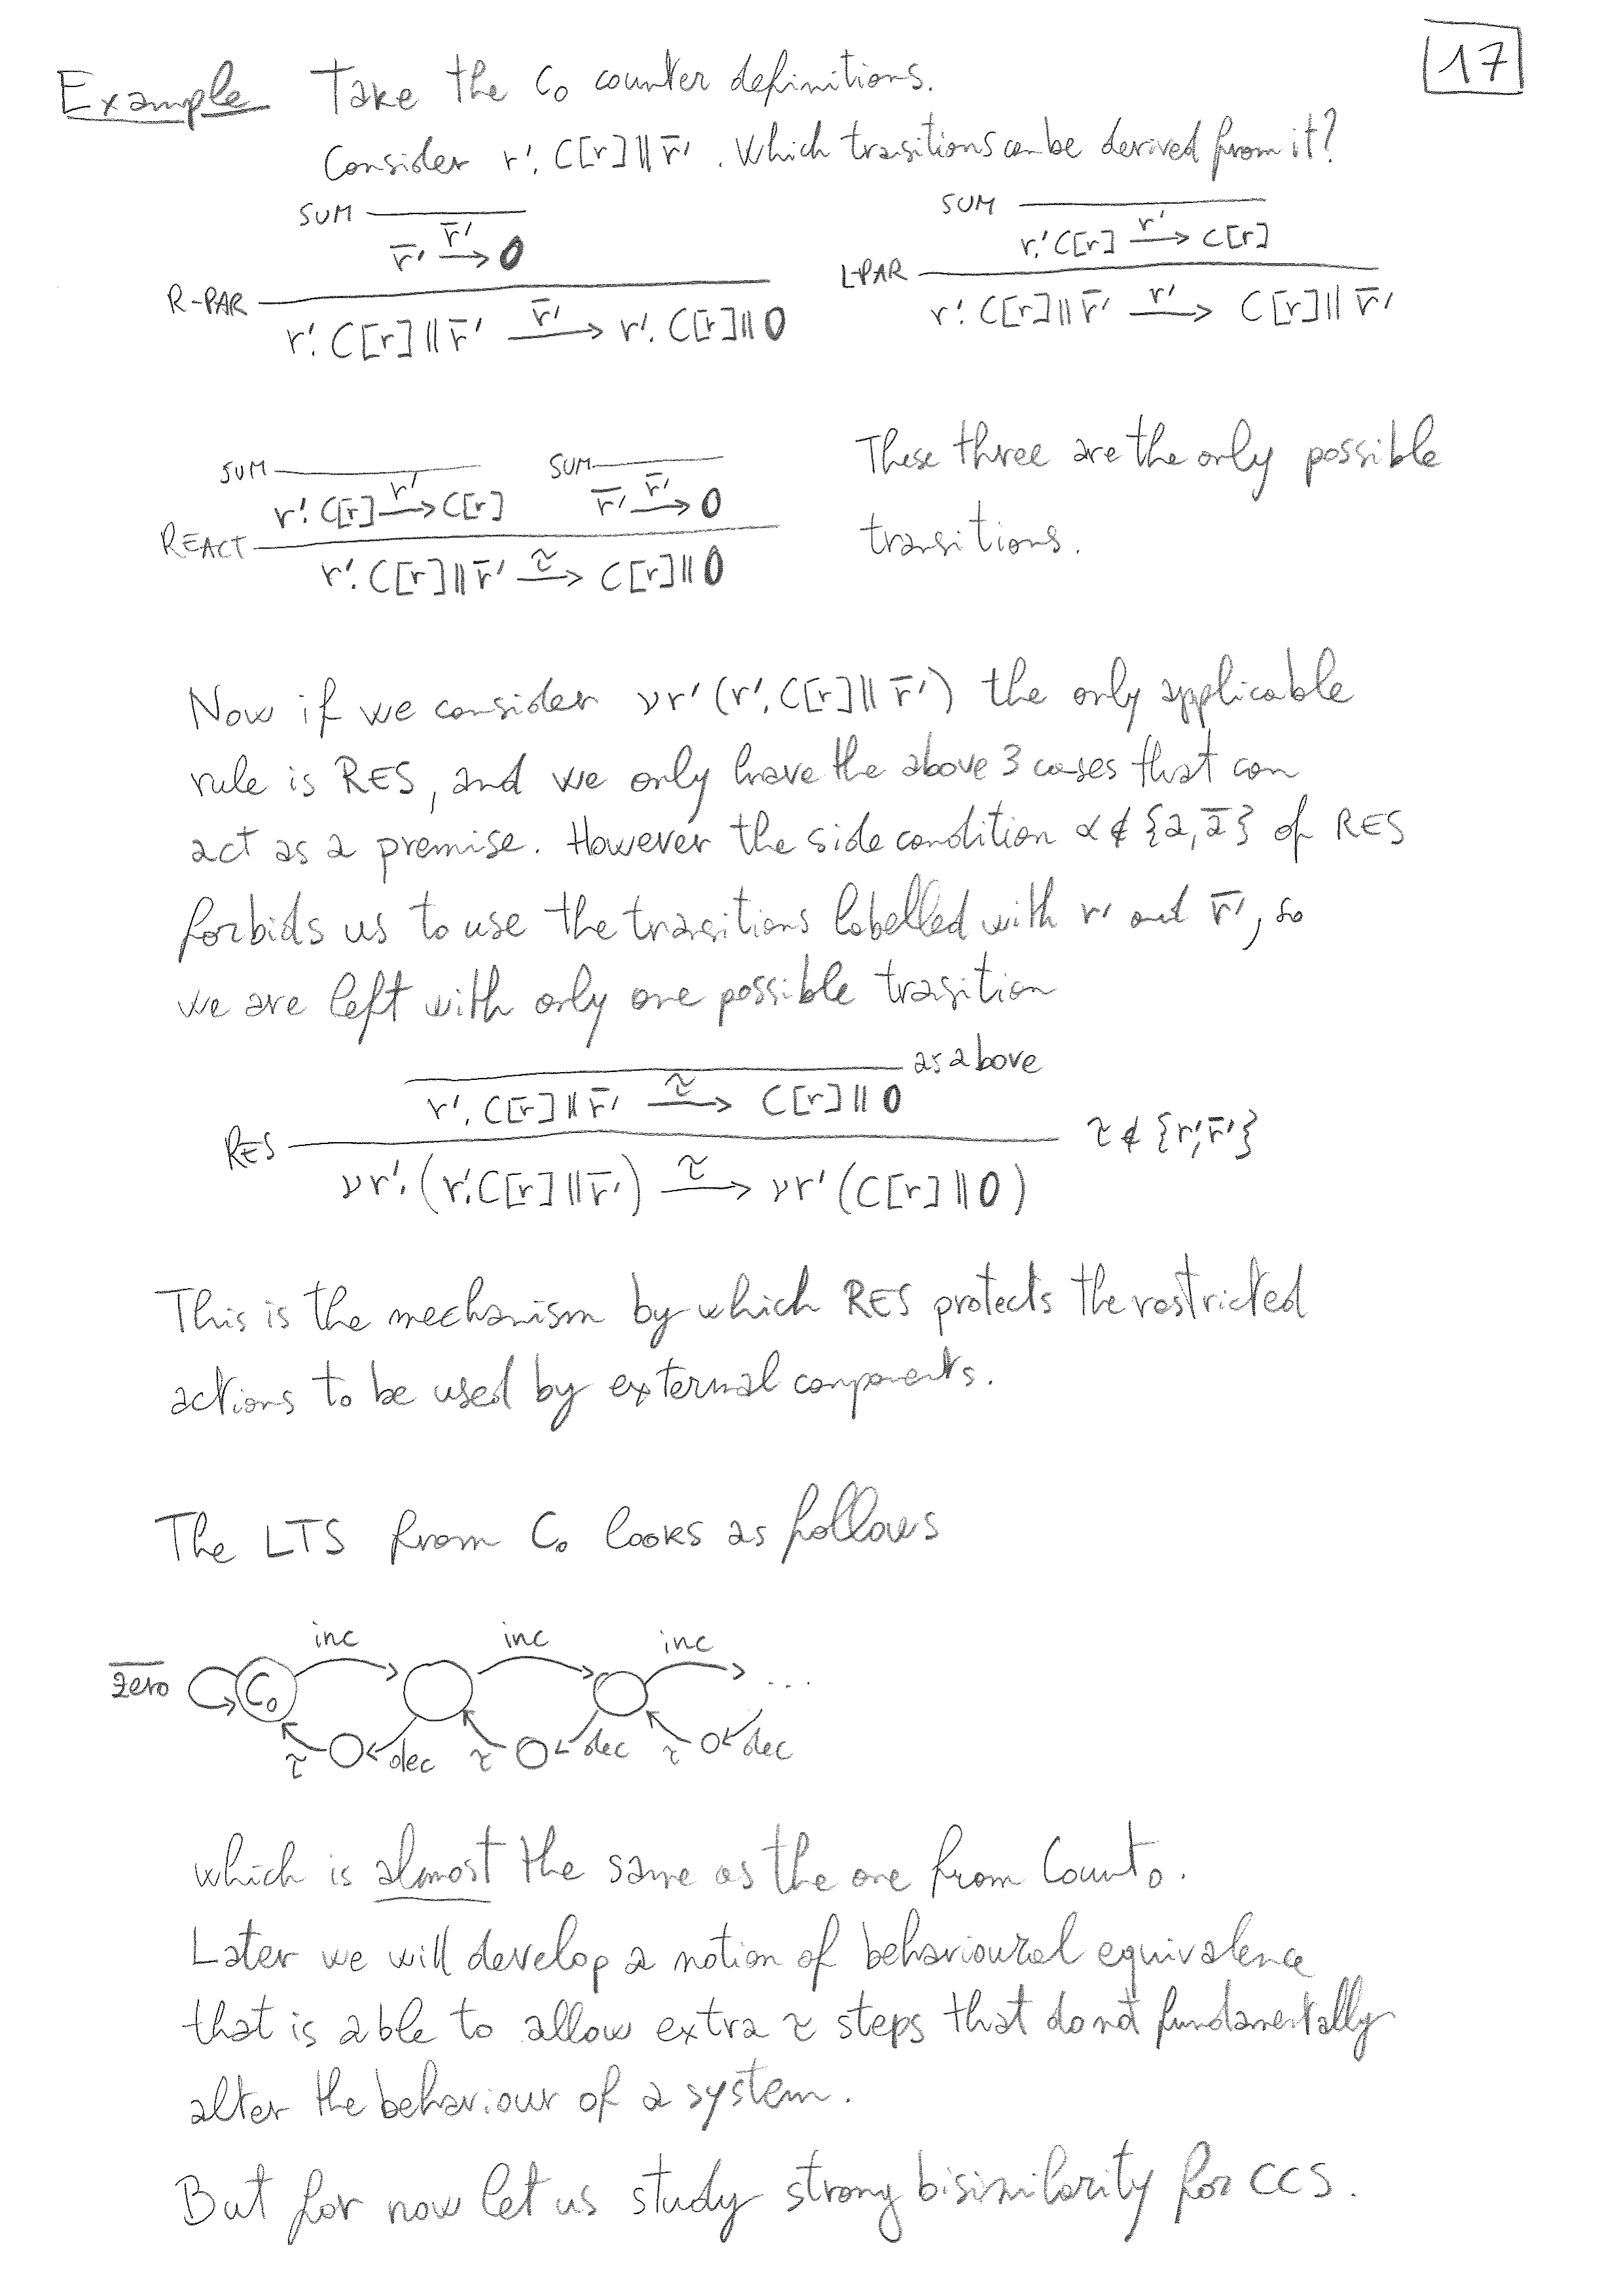 17
Example Take the C₀ counter definitions.
Consider r'. C[r] || r̄' . Which trasitions can be derived from it?
SUM
r̄' —r̄'→ 0
R-PAR
r'. C[r] || r̄' —r̄'→ r'. C[r] || 0
SUM
r'. C[r] —r'→ C[r]
L-PAR
r'. C[r] || r̄' —r'→ C[r] || r̄'
SUM
r'. C[r] —r'→ C[r]
SUM
r̄' —r̄'→ 0
REACT
r'. C[r] || r̄' —τ→ C[r] || 0
These three are the only possible
transitions.
Now if we consider νr' (r'. C[r] || r̄') the only applicable
rule is RES, and we only have the above 3 cases that can
act as a premise. However the side condition α ∉ {a, ā} of RES
forbids us to use the transitions labelled with r' and r̄', so
we are left with only one possible trasition
as above
r'. C[r] || r̄' —τ→ C[r] || 0
RES
τ ∉ {r', r̄'}
νr'. (r'. C[r] || r̄') —τ→ νr' (C[r] || 0)
This is the mechanism by which RES protects the restricted
actions to be used by external components.
The LTS from C₀ looks as follows
inc inc inc
zero̅ C₀ ...
τ dec τ dec τ dec
which is almost the same as the one from Count₀.
Later we will develop a notion of behavioural equivalence
that is able to allow extra τ steps that do not fundamentally
alter the behaviour of a system.
But for now let us study strong bisimilarity for CCS.